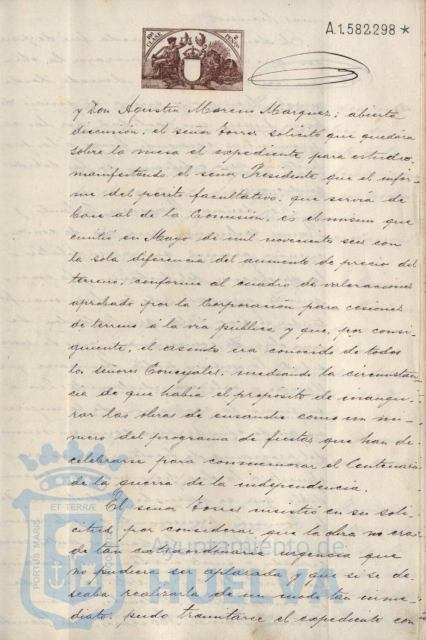 A.1.582.298 *
y Don Agustin Moreno Marquez; abierta
discusion, el señor Torres solicitó que quedara
sobre la mesa el expediente para estudio,
manifestando el señor Presidente que el infor-
me del perito facultativo, que serviria de
base al de la Comision, es el mismo que
emitió en Mayo de mil novecientos seis con
la sola diferencia del aumento de precio del
terreno, conforme al cuadro de valoraciones
aprobado por la Corporación para cesiones
de terreno á la via pública y que, por consi-
guiente, el asunto era conocido de todos
los señores Concejales, mediando la circunstan-
cia de que habia el propósito de inaugu-
rar las obras de ensanche como un nú-
mero del programa de fiestas que han de
celebrarse para conmemorar el Centenario
de la guerra de la independencia.
El señor Torres insistió en su soli-
citud por considerar que la obra no era
de tan extraordinaria urgencia que
no pudiera ser aplazada y que si se de-
seaba realizarla de un modo tan inme-
diato, pudo tramitarse el expediente con
PORTUS MARIS ET TERRÆ
Ayuntamiento de
HUELVA